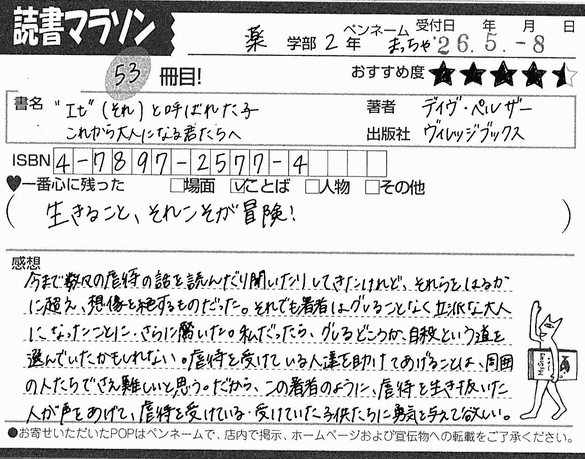 読書マラソン
薬 学部 2 年 ペンネーム まっちゃ 受付日 年 月 日 '26.5.-8
53 冊目! おすすめ度 ★★★★★
書名 "It"(それ)と呼ばれた子 著者 デイヴ・ペルザー
これから大人になる君たちへ 出版社 ヴィレッジブックス
ISBN 4-7897-2577-4
♥一番心に残った □場面 ☑ことば □人物 □その他
(生きること、それこそが冒険!)
感想
今まで数々の虐待の話を読んだり聞いたりしてきたけれど、それらをはるか
に超え、想像を絶するものだった。それでも著者はグレることなく立派な大人
になったことに、さらに驚いた。私だったら、グレるどころか、自殺という道を
選んでいたかもしれない。虐待を受けている人達を助けてあげることは、周囲
の人たちでさえ難しいと思う。だから、この著者のように、虐待を生き抜いた
人が声をあげて、虐待を受けている・受けていた子供たちに勇気を与えて欲しい。
●お寄せいただいたPOPはペンネームで、店内で掲示、ホームページおよび宣伝物への転載をご了承ください。